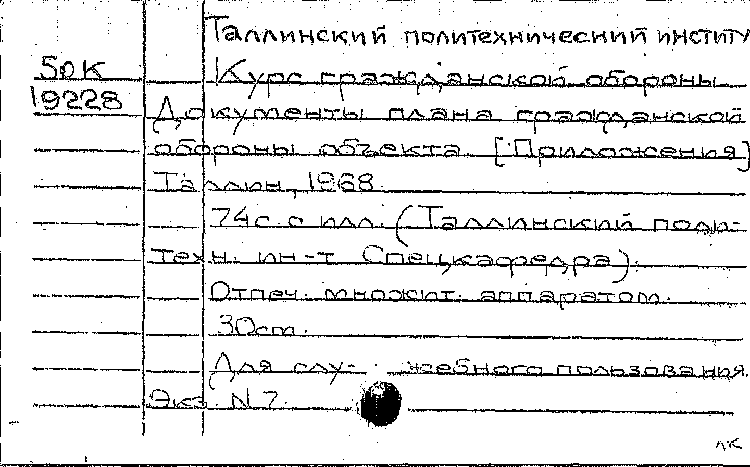 Таллинский политехнический институ
50К Курс гражданской обороны
19228 Документы плана гражданской
обороны объекта. [Приложения]
Таллин, 1968.
74с. с илл. (Таллинский поли-
техн. ин-т Спецкафедра).
Отпеч. множит. аппаратом.
30см.
Для слу- жебного пользования.
Экз. N 7.
лк